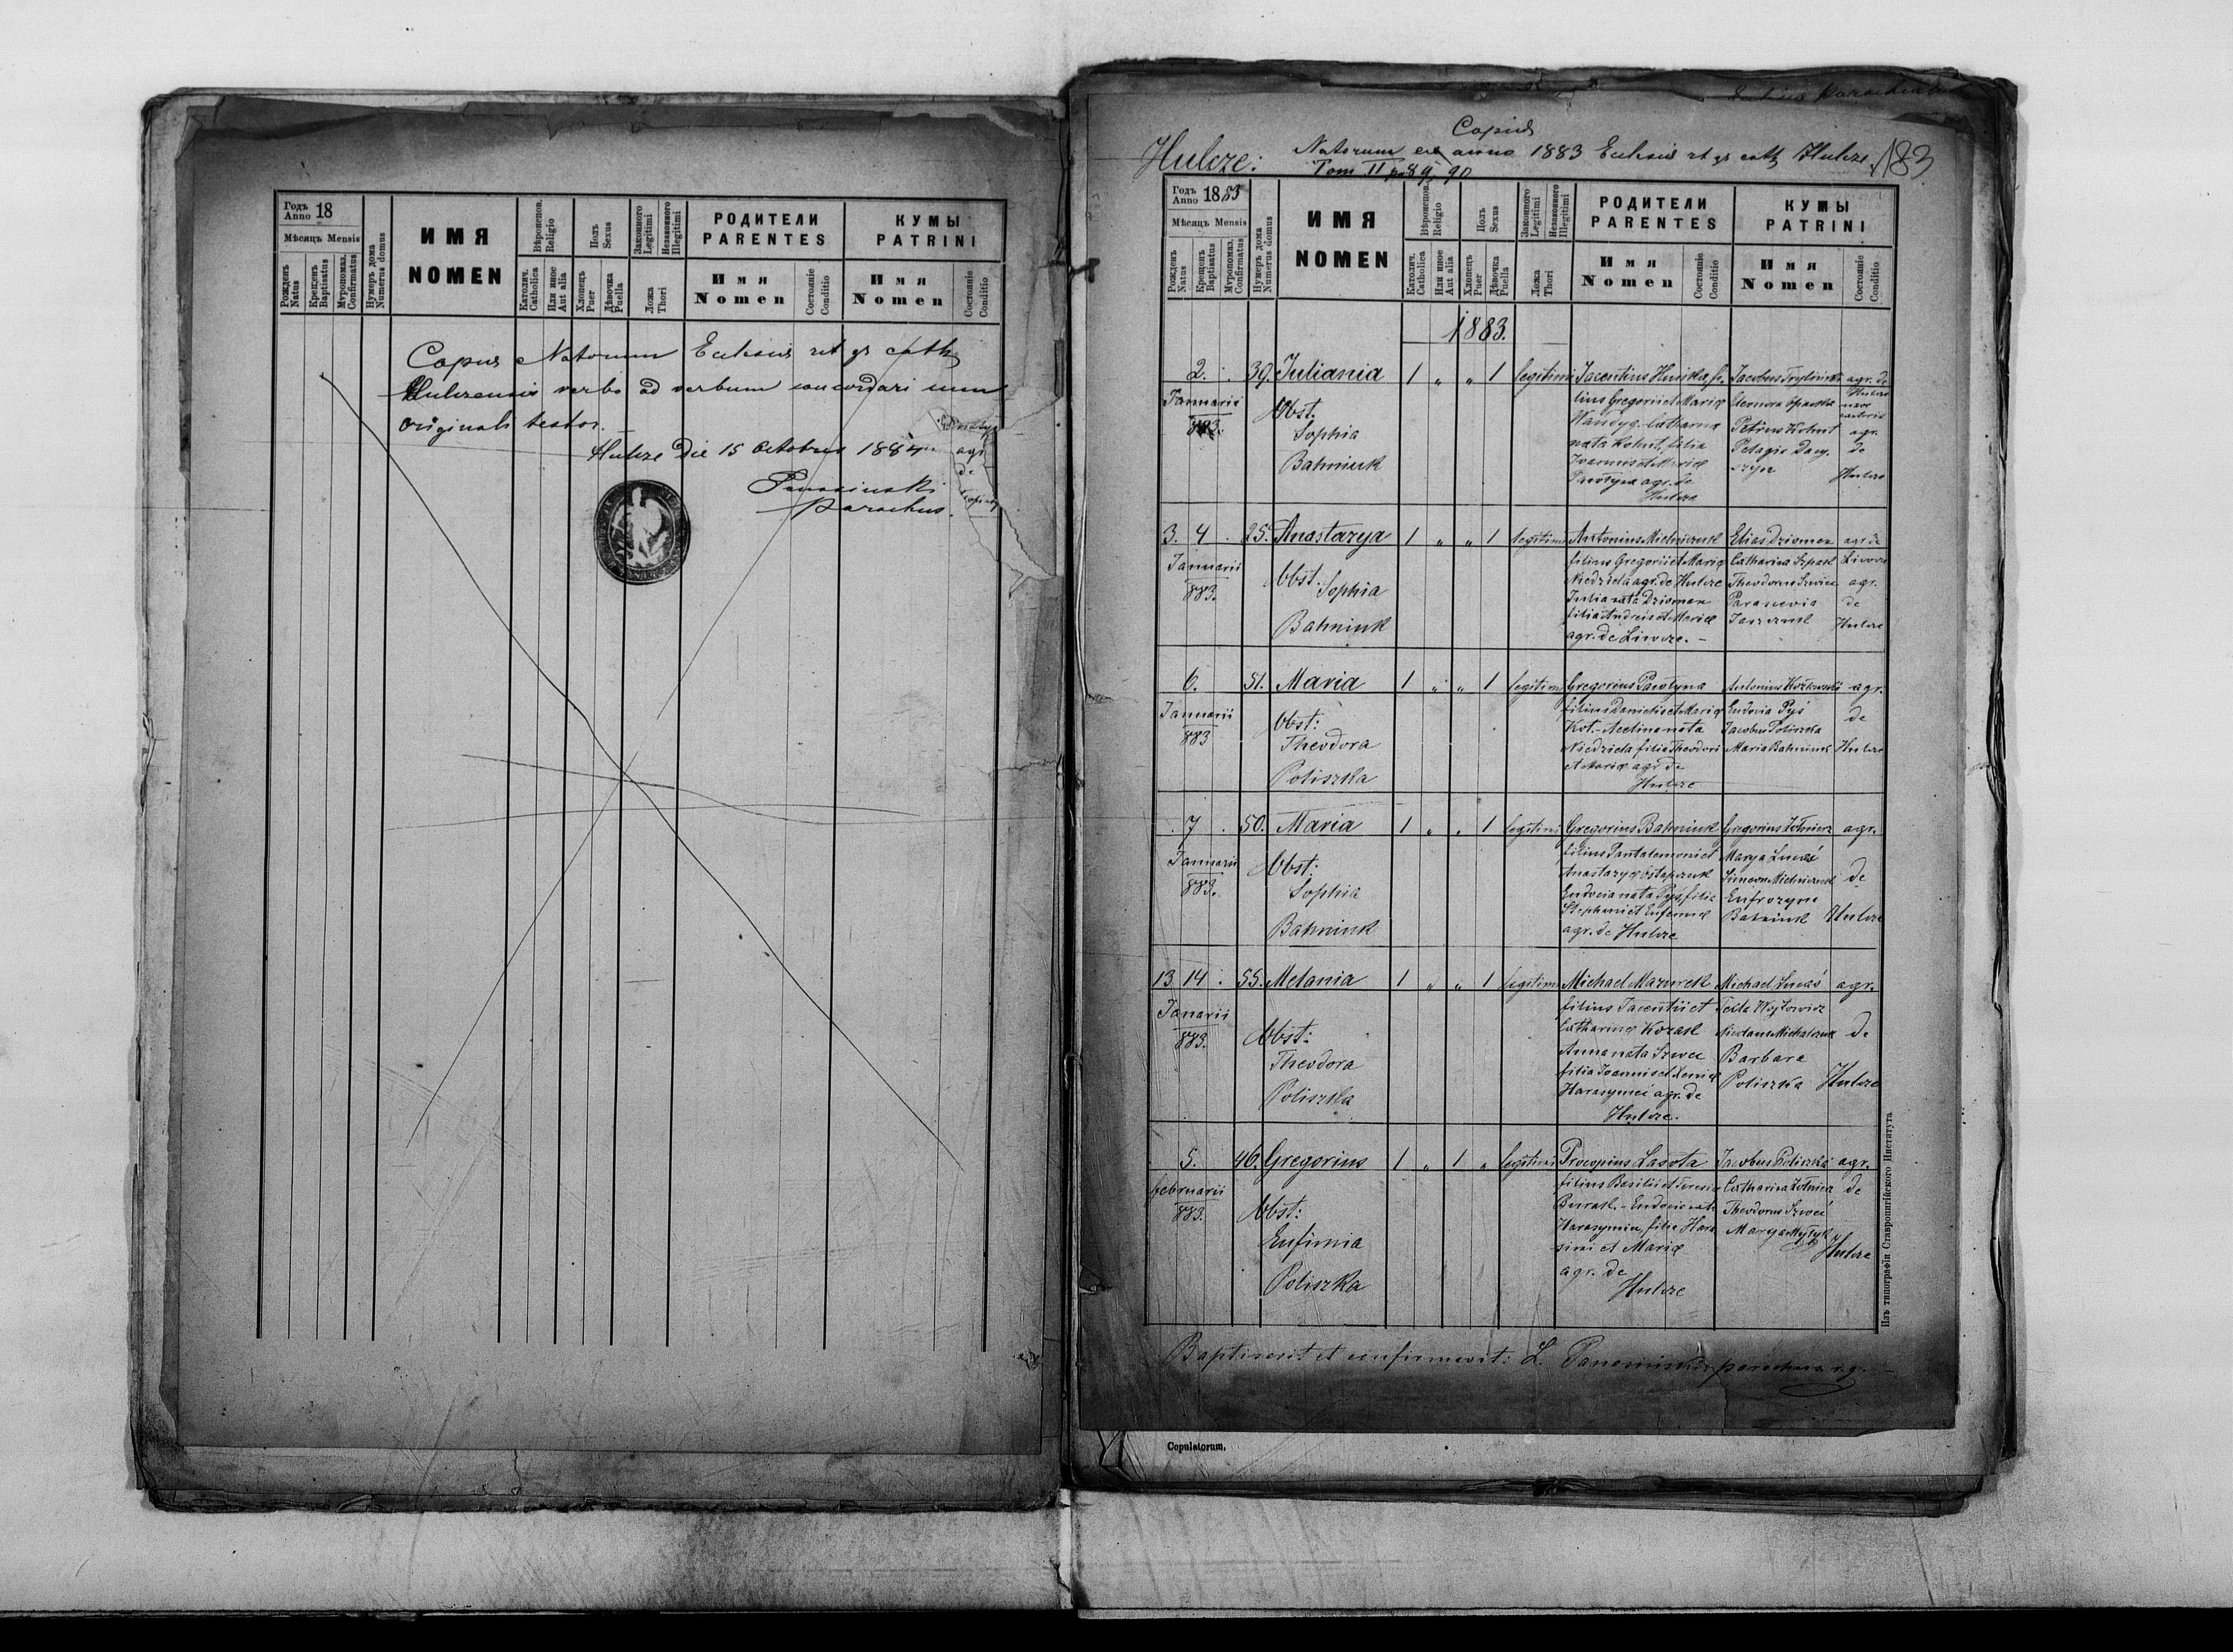 Годъ Anno 18
Мѣсяцъ Mensis
Рожденъ Natus
Крещенъ Baptisatus
Мѵропомаз. Confirmatus
Нумеръ дома Numerus domus
ИМЯ
NOMEN
Вѣроисповѣд. Religio
Католич. Catholica
Или иное Aut alia
Полъ Sexus
Хлопецъ Puer
Дѣвочка Puella
Законного Legitimi
Незаконного Illegitimi
Ложа Thori
РОДИТЕЛИ
PARENTES
Имя
Nomen
Состояніе Conditio
КУМЫ
PATRINI
Имя
Nomen
Состояніе Conditio
Copius Natorum Eclesiis rit gr cath
Hulczensis verbo ad verbum concordari cum
originali testor.
Hulcze die 15 Octobris 1884
parochus.
agr.
de
Hulcze:
Copius
Natorum ex anno 1883 Eclesiis rit gr cath Hulcze
183
Tom II p. 89, 90
Годъ Anno 1883
Мѣсяцъ Mensis
Рожденъ Natus
Крещенъ Baptisatus
Мѵропомаз. Confirmatus
Нумеръ дома Numerus domus
ИМЯ
NOMEN
Вѣроисповѣд. Religio
Католич. Catholica
Или иное Aut alia
Полъ Sexus
Хлопецъ Puer
Дѣвочка Puella
Законного Legitimi
Незаконного Illegitimi
Ложа Thori
РОДИТЕЛИ
PARENTES
Имя
Nomen
Состояніе Conditio
КУМЫ
PATRINI
Имя
Nomen
Состояніе Conditio
1883.
2. 39. Juliania 1 „ „ 1 legitimi
Januarii
883.
Obst:
Sophia
Bahniuk
Jacentius Husiká fi-
lius Gregorii et Mariæ
Catharina
nata Kohut, filia
Joannis et Mariæ
Parotyna agr. de
Hulcze
Jacobus
Eleonora
Petrus Kohut
Pelagia Dacy-
szyn
agr. de
Hulcze
agr.
de
Hulcze
3. 4. 25. Anastazya 1 „ „ 1 legitimi
Januarii
883.
Obst: Sophia
Bahniuk
Antonius Michniczuk
filius Gregorii et Mariæ
Niedziela agr. de Hulcze
Julia nata Dziomen
filia Andreis et Mariæ
agr. de Liwcze.-
Elias Dziomen
Catharina
Theodorus Szwiec
Parascevia
agr. de
Liwcze
agr.
de
Hulcze
6. 51. Maria 1 „ „ 1 legitimi
Januarii
883
Obst:
Theodora
Poliszka
Gregorius Parotyna
filius Danielis et Mariæ
Kot.- Acelina nata
Niedziela filia Theodori
et Mariæ agr. de
Hulcze
Antonius
Eudocia Pyś
Jacobus Poliszka
Maria Bahniuk
agr.
de
Hulcze
7. 50. Maria 1 „ „ 1 legitimi
Januarii
883.
Obst:
Sophia
Bahniuk
Gregorius Bahniuk
filius Pantalemoni et
Anastazyæ Ostapczuk
Eudocia nata Pyś, filia
Stephani et Eufemiæ
agr. de Hulcze
Gregorius Żołnierz
Marya Lucaś
Simeon Michniczuk
Eufrozyna
Bahniuk
agr.
de
Hulcze
13 14. 55. Melania 1 „ „ 1 legitimi
Janarii
883.
Obst:
Theodora
Poliszka
Michael Mazurek
filius Jacentii et
Catharinæ Kozak
Anna nata Szwec
filia Joannis et Xeniæ
Harasymci agr. de
Hulcze.
Michael Lucaś
Tekla Wojtowicz
Nicolaus Michalczuk
Barbara
Poliszka
agr.
de
Hulcze
5. 46. Gregorius 1 „ 1 „ legitimi
februarii
883.
Obst:
Eufimia
Poliszka
Procopius Lasota
filius Basilii et Teresiæ
Burak.- Eudocia nata
Harasymiu, filia Hara
simi et Mariæ
agr. de
Hulcze
Jacobus Poliszka
Catharina Żołnierz
Theodorus Szweć
Marya
agr.
de
Hulcze
Baptisavit et confirmavit: L. parochus
Изъ типографіи Ставропигійского Института
Copulatorum.